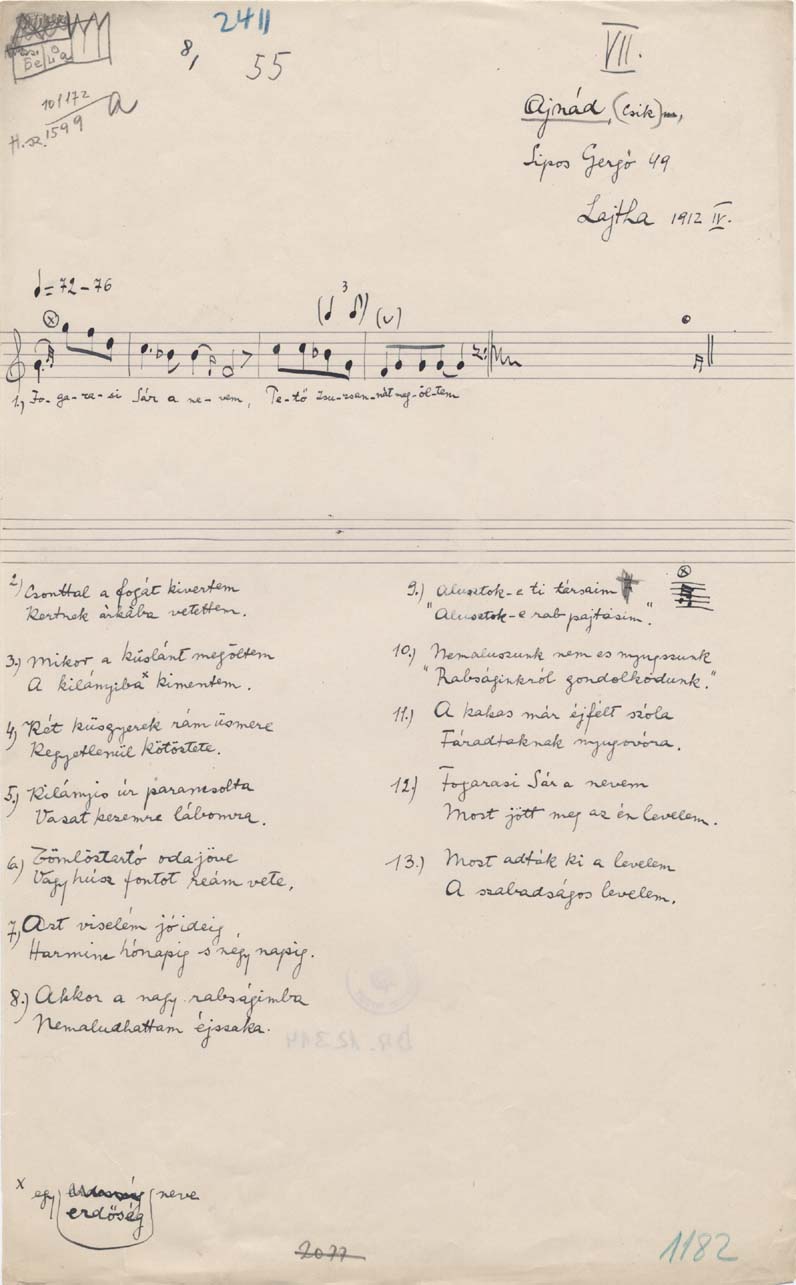 2411
8,
55
VII.
Béla
Ajnád, (Csik) m,
101172 a
H. sz. 1599
Sipos Gergó 49
Lajtha 1912 IV.
= 72-76
3
(x)
(v)
1., Fo-ga-ra-si Sár a ne-vem, Te-tő Zsu-zsan-nát meg-öl-tem
2) Csonttal a fogát kivertem
Kertnek árkába vetettem.
3.) Mikor a küslánt megöltem
A kilányiba x kimentem.
4) Két küsgyerek rám üsmere
Kegyetlenül kötöztete.
5.) Kilányis úr parancsolta
Vasat kezemre lábomra.
6) Tömlöstartó oda jöve
Vagy húsz fontot reám vete.
7, Azt viselém jó ideig
Harminc hónapig s négy napig.
8.) Akkor a nagy rabságimba
Nemaludhattam éjszaka.
9.) Alusztok-e ti társaim
"Alusztok-e rab pajtásim".
(x)
10.) Nemaluszunk nem es nyugszunk
"Rabságinkról gondolkodunk."
11.) A kakas már éjfélt szóla
Fáradtaknak nyugovóra.
12.) Fogarasi Sár a nevem
Most jött meg az én levelem.
13.) Most adták ki a levelem
A szabadságos levelem.
x egy erdőség neve
2077
1182